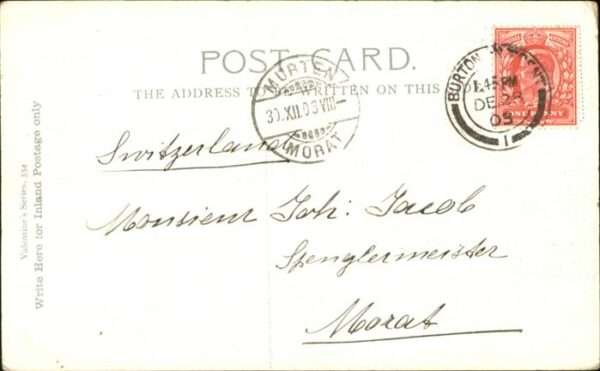 POST CARD.
THE ADDRESS TO BE WRITTEN ON THIS
MURTEN
30.XII.03 VIII
MORAT
BURTON ON TRENT
1.45 PM
DE 28
03
1
ONE PENNY
Switzerland
Monsieur Joh: Jacob
Spenglermeister
Morat
Valentine's Series. 154
Write Here for Inland Postage only